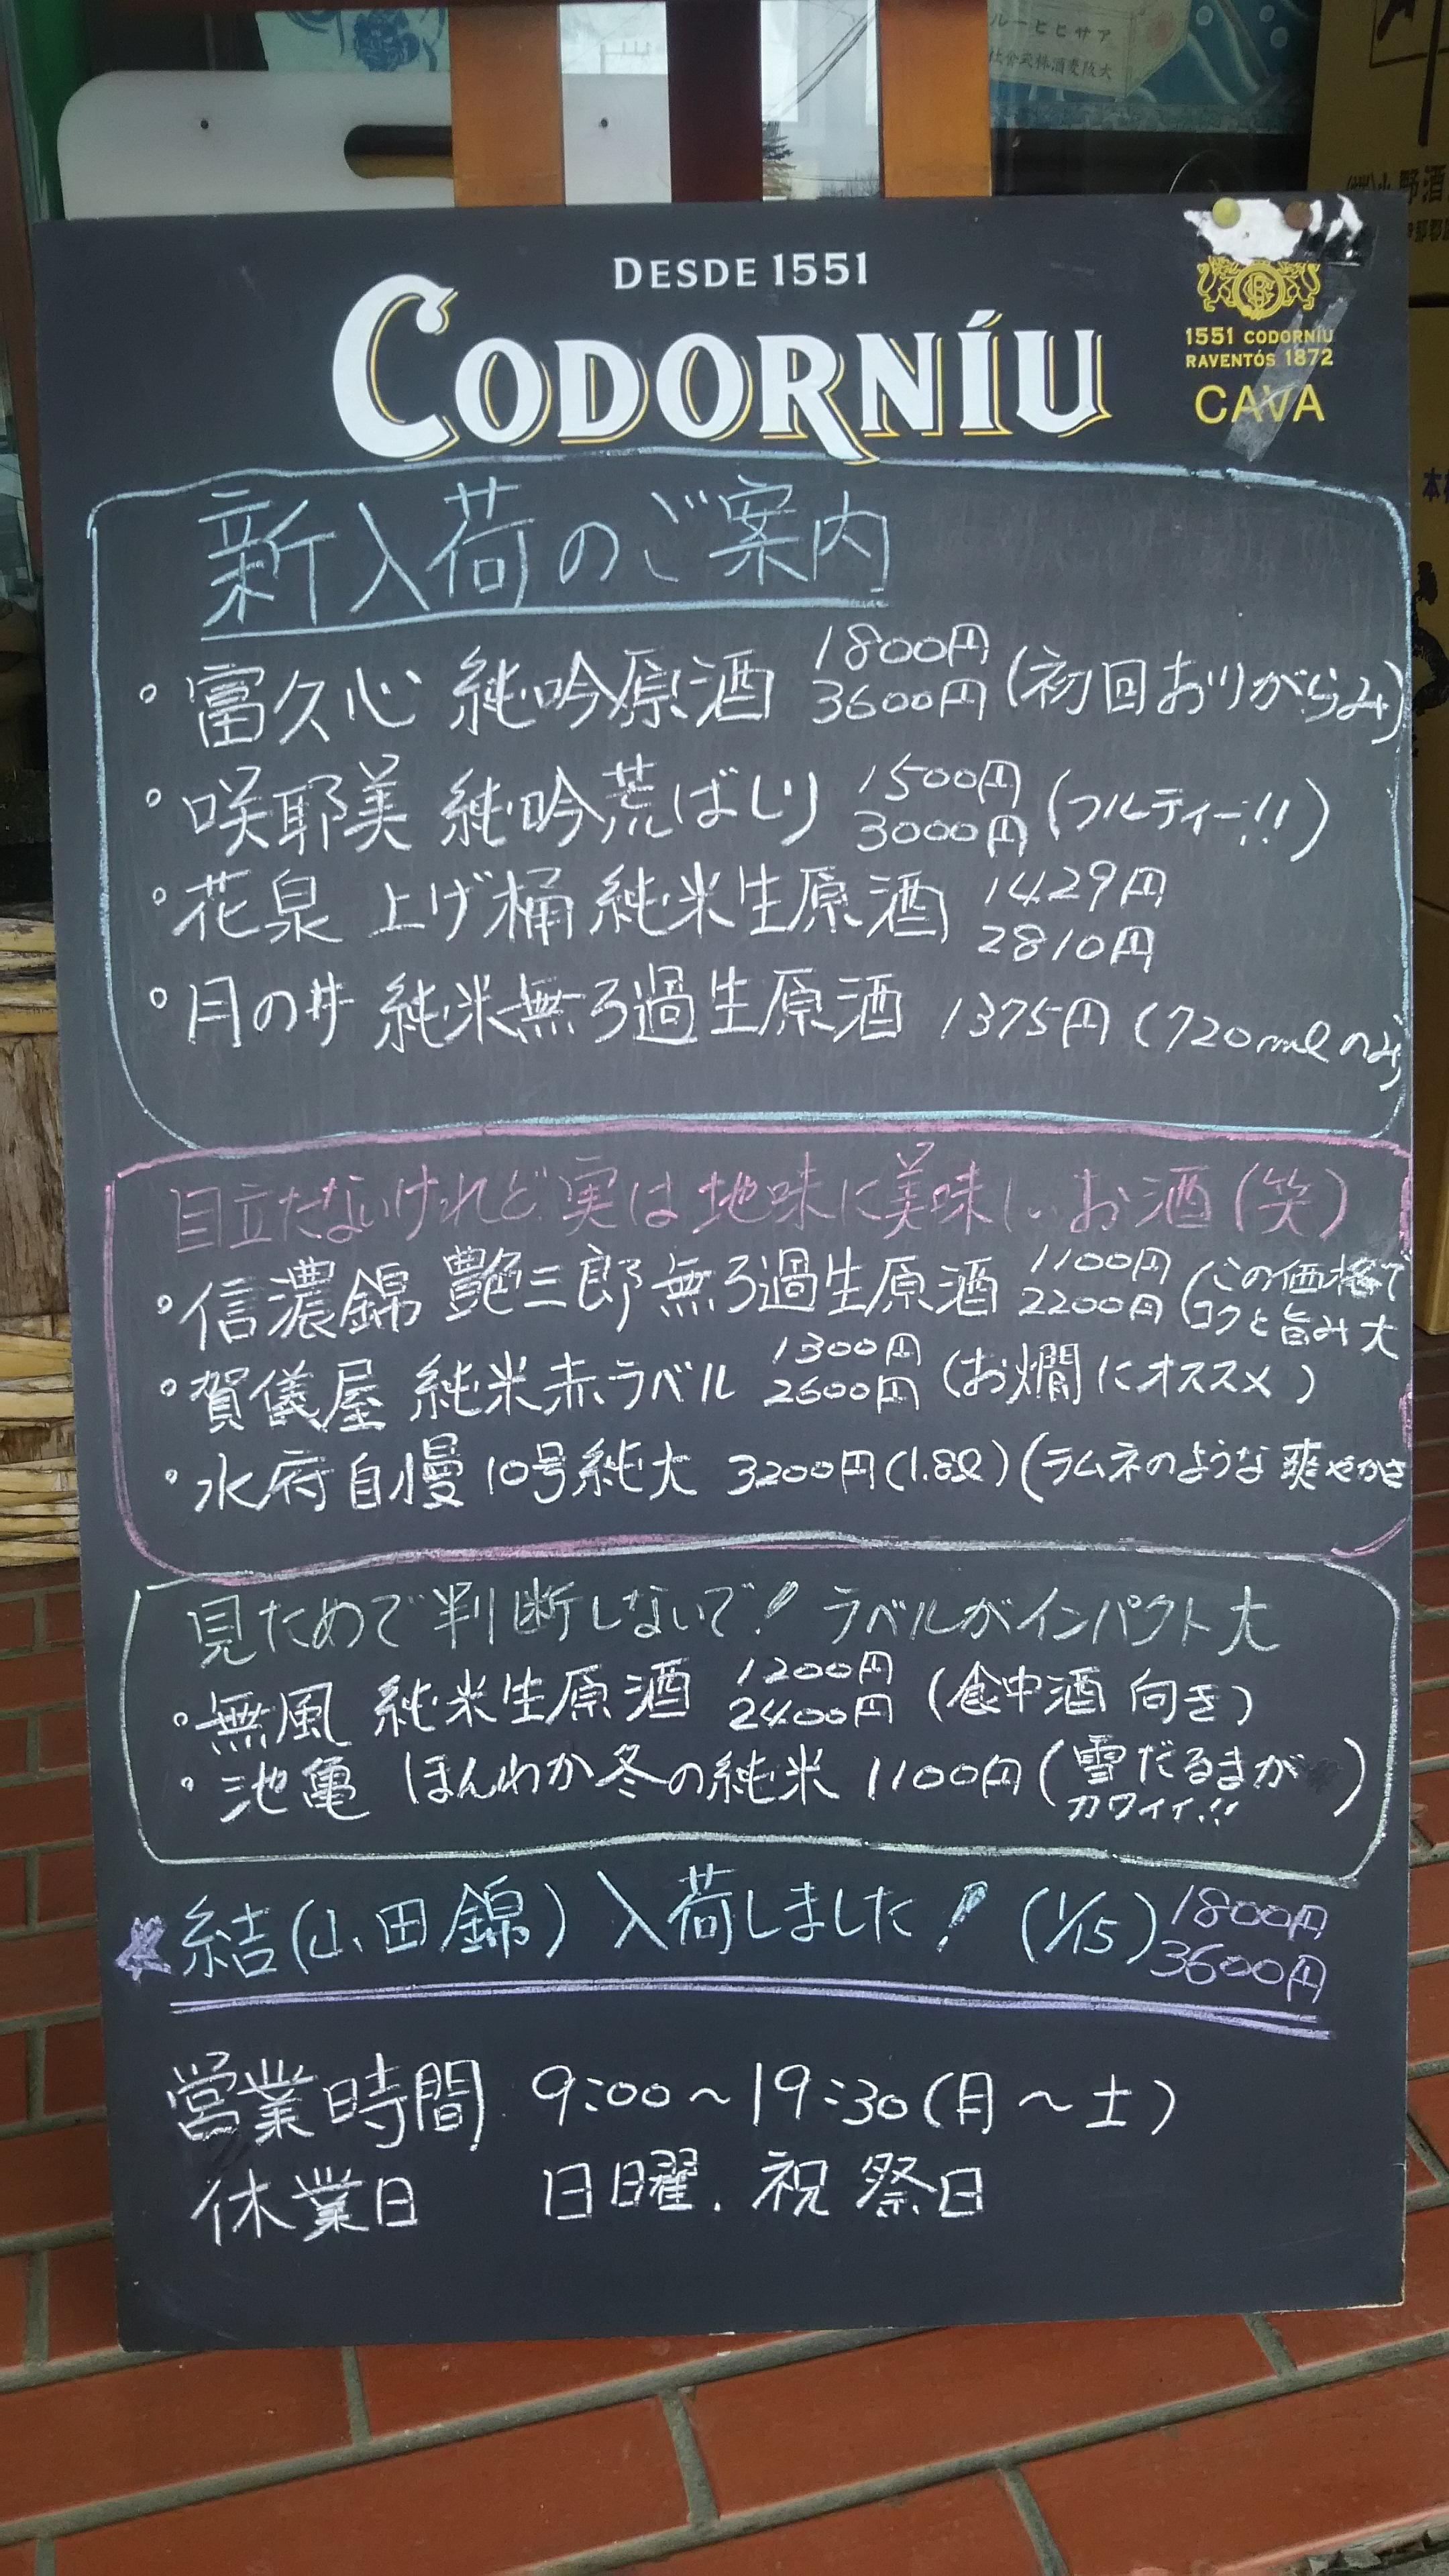 アサヒビール
大阪麦酒株式会社
DESDE 1551
CODORNÍU
1551 CODORNÍU
RAVENTÓS 1872
CAVA
新入荷のご案内
。富久心 純吟原酒 1800円 3600円 (初回おりがらみ)
。咲耶美 純吟荒ばしり 1500円 3000円 (フルティー!!)
。花泉 上げ桶 純米生原酒 1429円 2810円
。月の井 純米無ろ過生原酒 1375円 (720mlのみ)
目立たないけれど実は地味に美味しいお酒(笑)
。信濃錦 艶三郎 無ろ過生原酒 1100円 2200円 (この価格でコクと旨み大
。賀儀屋 純米赤ラベル 1300円 2600円 (お燗にオススメ)
。水府自慢 10号純大 3200円(1.8ℓ) (ラムネのような爽やかさ
見ためで判断しないで! ラベルがインパクト大
。無風 純米生原酒 1200円 2400円 (食中酒向き)
。池亀 ほんわか冬の純米 1100円 (雪だるまがカワイイ!!)
★結(山田錦)入荷しました! (1/15) 1800円 3600円
営業時間 9:00~19:30(月~土)
休業日 日曜.祝祭日